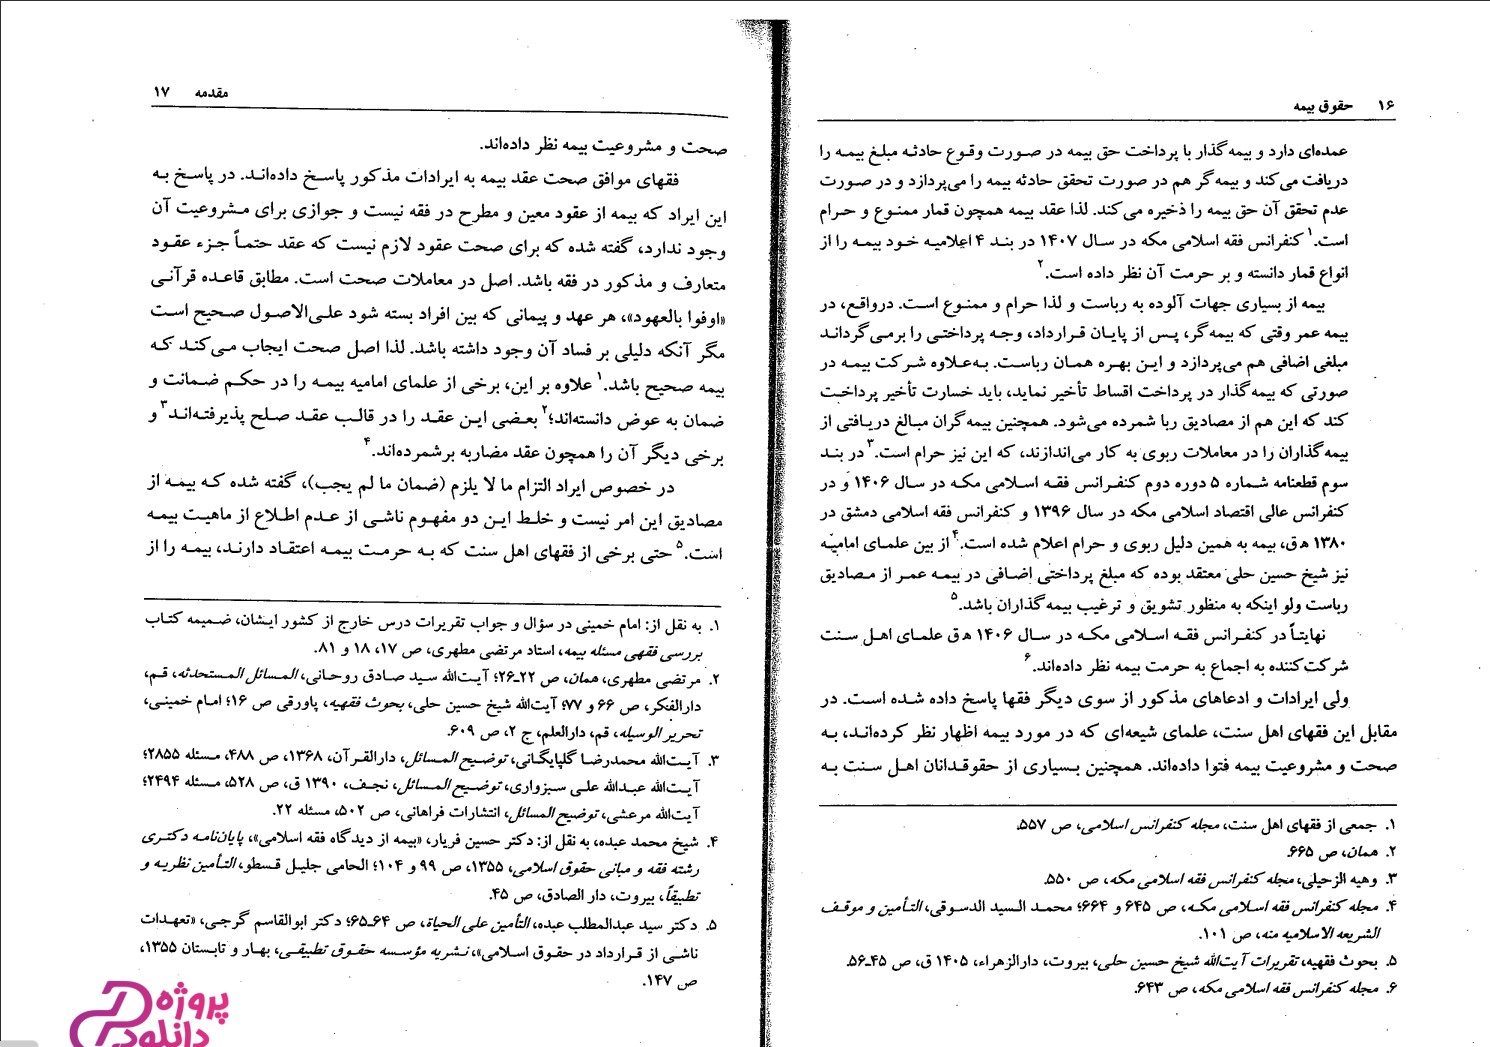 ۱۶ حقوق بیمه
عمده‌ای دارد و بیمه‌گذار با پرداخت حق بیمه در صورت وقوع حادثه مبلغ بیمه را
دریافت می‌کند و بیمه‌گر هم در صورت تحقق حادثه بیمه را می‌پردازد و در صورت
عدم تحقق آن حق بیمه را ذخیره می‌کند. لذا عقد بیمه همچون قمار ممنوع و حرام
است.۱ کنفرانس فقه اسلامی مکه در سال ۱۴۰۷ در بند ۴ اعلامیه خود بیمه را از
انواع قمار دانسته و بر حرمت آن نظر داده است.۲
بیمه از بسیاری جهات آلوده به رباست و لذا حرام و ممنوع است. درواقع، در
بیمه عمر وقتی که بیمه‌گر، پس از پایان قرارداد، وجه پرداختی را برمی‌گرداند
مبلغی اضافی هم می‌پردازد و این بهره همان رباست. به‌علاوه شرکت بیمه در
صورتی که بیمه‌گذار در پرداخت اقساط تأخیر نماید، باید خسارت تأخیر پرداخت
کند که این هم از مصادیق ربا شمرده می‌شود. همچنین بیمه‌گران مبالغ دریافتی از
بیمه‌گذاران را در معاملات ربوی به کار می‌اندازند، که این نیز حرام است.۳ در بند
سوم قطعنامه شماره ۵ دوره دوم کنفرانس فقه اسلامی مکه در سال ۱۴۰۶ و در
کنفرانس عالی اقتصاد اسلامی مکه در سال ۱۳۹۶ و کنفرانس فقه اسلامی دمشق در
۱۳۸۰ ه‍ ق، بیمه به همین دلیل ربوی و حرام اعلام شده است.۴ از بین علمای امامیه
نیز شیخ حسین حلی معتقد بوده که مبلغ پرداختی اضافی در بیمه عمر از مصادیق
رباست ولو اینکه به منظور تشویق و ترغیب بیمه‌گذاران باشد.۵
نهایتاً در کنفرانس فقه اسلامی مکه در سال ۱۴۰۶ ه‍ ق علمای اهل سنت
شرکت‌کننده به اجماع به حرمت بیمه نظر داده‌اند.۶
ولی ایرادات و ادعاهای مذکور از سوی دیگر فقها پاسخ داده شده است. در
مقابل این فقهای اهل سنت، علمای شیعه‌ای که در مورد بیمه اظهار نظر کرده‌اند، به
صحت و مشروعیت بیمه فتوا داده‌اند. همچنین بسیاری از حقوقدانان اهل سنت به
۱. جمعی از فقهای اهل سنت، مجله کنفرانس اسلامی، ص ۵۵۷.
۲. همان، ص ۶۶۵.
۳. وهبه الزحیلی، مجله کنفرانس فقه اسلامی مکه، ص ۵۵۰.
۴. مجله کنفرانس فقه اسلامی مکه، ص ۶۴۵ و ۶۶۴؛ محمد السید الدسوقی، التأمین و موقف
الشریعه الاسلامیه منه، ص ۱۰۱.
۵. بحوث فقهیه، تقریرات آیت‌الله شیخ حسین حلی، بیروت، دارالزهراء، ۱۴۰۵ ق، ص ۴۵ـ۵۶.
۶. مجله کنفرانس فقه اسلامی مکه، ص ۶۴۳.
مقدمه ۱۷
صحت و مشروعیت بیمه نظر داده‌اند.
فقهای موافق صحت عقد بیمه به ایرادات مذکور پاسخ داده‌اند. در پاسخ به
این ایراد که بیمه از عقود معین و مطرح در فقه نیست و جوازی برای مشروعیت آن
وجود ندارد، گفته شده که برای صحت عقود لازم نیست که عقد حتماً جزء عقود
متعارف و مذکور در فقه باشد. اصل در معاملات صحت است. مطابق قاعده قرآنی
«اوفوا بالعهود»، هر عهد و پیمانی که بین افراد بسته شود علی‌الاصول صحیح است
مگر آنکه دلیلی بر فساد آن وجود داشته باشد. لذا اصل صحت ایجاب می‌کند که
بیمه صحیح باشد.۱ علاوه بر این، برخی از علمای امامیه بیمه را در حکم ضمانت و
ضمان به عوض دانسته‌اند؛۲ بعضی این عقد را در قالب عقد صلح پذیرفته‌اند۳ و
برخی دیگر آن را همچون عقد مضاربه برشمرده‌اند.۴
در خصوص ایراد التزام ما لا یلزم (ضمان ما لم یجب)، گفته شده که بیمه از
مصادیق این امر نیست و خلط این دو مفهوم ناشی از عدم اطلاع از ماهیت بیمه
است.۵ حتی برخی از فقهای اهل سنت که به حرمت بیمه اعتقاد دارند، بیمه را از
۱. به نقل از: امام خمینی در سؤال و جواب تقریرات درس خارج از کشور ایشان، ضمیمه کتاب
بررسی فقهی مسئله بیمه، استاد مرتضی مطهری، ص ۱۷، ۱۸ و ۸۱.
۲. مرتضی مطهری، همان، ص ۲۲ـ۲۶؛ آیت‌الله سید صادق روحانی، المسائل المستحدثه، قم،
دارالفکر، ص ۶۶ و ۷۷؛ آیت‌الله شیخ حسین حلی، بحوث فقهیه، پاورقی ص ۱۶؛ امام خمینی،
تحریر الوسیله، قم، دارالعلم، ج ۲، ص ۶۰۹.
۳. آیت‌الله محمدرضا گلپایگانی، توضیح المسائل، دارالقرآن، ۱۳۶۸، ص ۴۸۸، مسئله ۲۸۵۵؛
آیت‌الله عبدالله علی سبزواری، توضیح المسائل، نجف، ۱۳۹۰ ق، ص ۵۲۸، مسئله ۲۴۹۴؛
آیت‌الله مرعشی، توضیح المسائل، انتشارات فراهانی، ص ۵۰۲، مسئله ۲۲.
۴. شیخ محمد عبده، به نقل از: دکتر حسین فریار، «بیمه از دیدگاه فقه اسلامی»، پایان‌نامه دکتری
رشته فقه و مبانی حقوق اسلامی، ۱۳۵۵، ص ۹۹ و ۱۰۴؛ الحامی جلیل قسطو، التأمین نظریه و
تطبیقاً، بیروت، دار الصادق، ص ۴۵.
۵. دکتر سید عبدالمطلب عبده، التأمین علی الحیاة، ص ۶۴ـ۶۵؛ دکتر ابوالقاسم گرجی، «تعهدات
ناشی از قرارداد در حقوق اسلامی»، نشریه مؤسسه حقوق تطبیقی، بهار و تابستان ۱۳۵۵،
ص ۱۴۷.
پروژه
دانلود